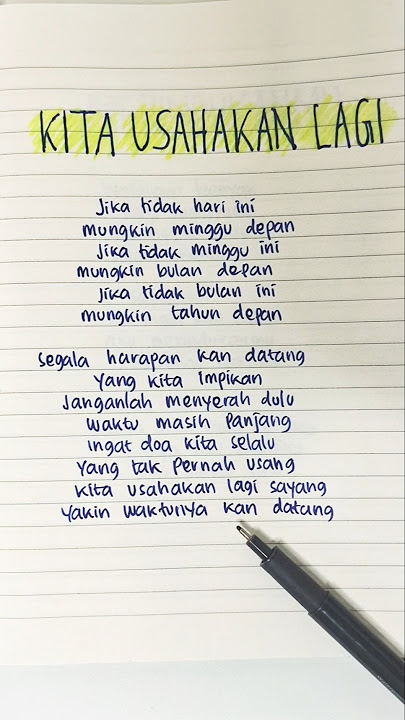 KITA USAHAKAN LAGI
Jika tidak hari ini
mungkin minggu depan
Jika tidak minggu ini
mungkin bulan depan
Jika tidak bulan ini
mungkin tahun depan
Segala harapan kan datang
Yang kita impikan
Janganlah menyerah dulu
Waktu masih Panjang
Ingat doa kita selalu
Yang tak Pernah usang
Kita usahakan lagi sayang
Yakin waktunya kan datang